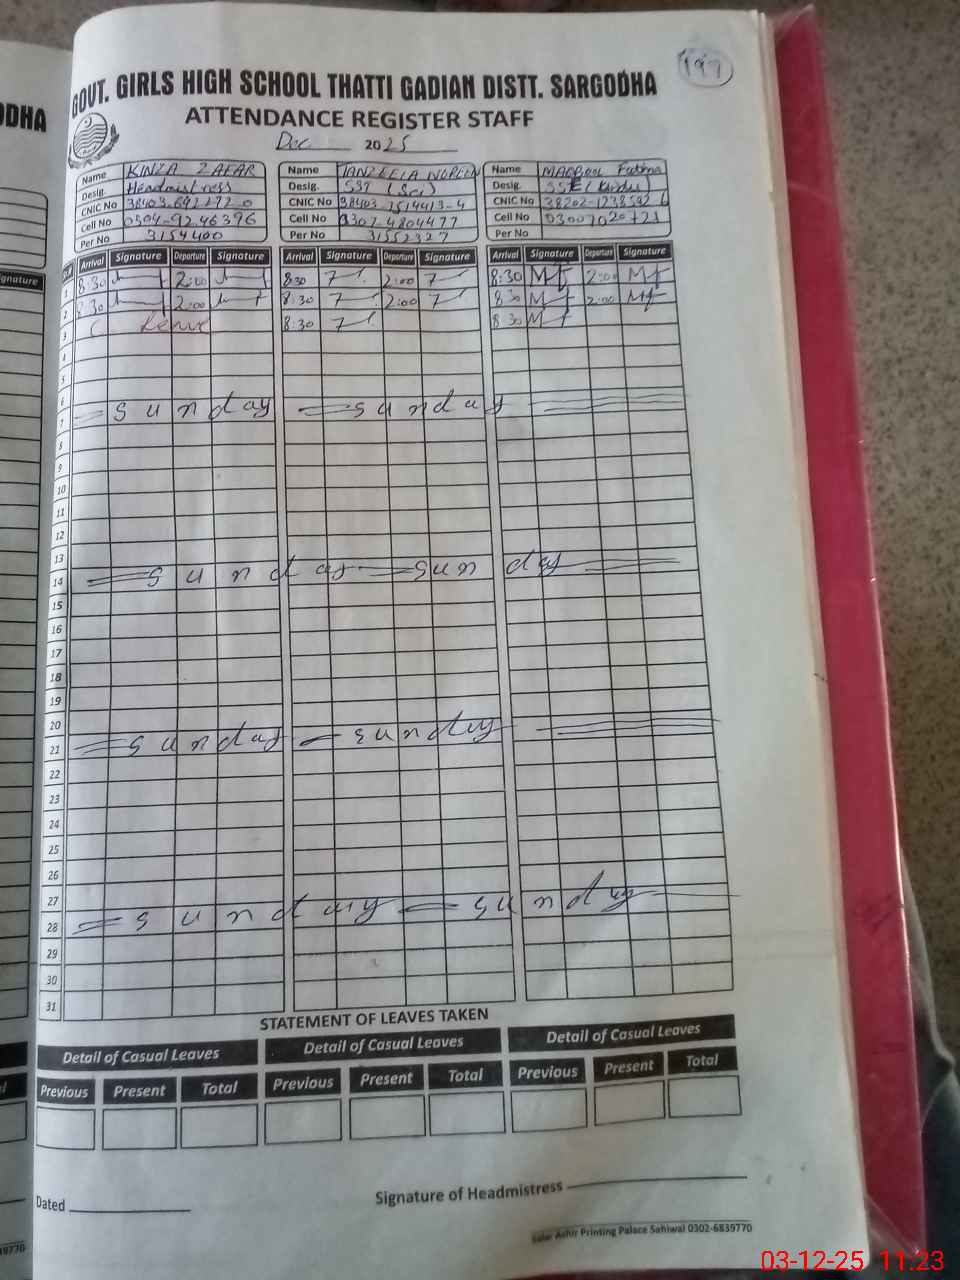 ODHA
197
GOVT. GIRLS HIGH SCHOOL THATTI GADIAN DISTT. SARGODHA
ATTENDANCE REGISTER STAFF
Dec 2025
Name KINZA ZAFAR
Desig. Headmistress
CNIC No
Cell No
Per No 3154400
Name TANZEELA NOREEN
Desig. SST (Sci)
CNIC No
Cell No 0307-4804477
Per No 31552327
Name MAQBOOL Fatima
Desig.
CNIC No
Cell No
Per No
Arrival Signature Departure Signature Arrival Signature Departure Signature Arrival Signature Departure Signature
1 8:30 2:00 8:30 2:00 8:30 2:00
2 8:30 2:00 8:30 2:00 8:30 2:00
3 C Leave 8:30 8:30
4
5
6
7 Sunday Sunday
8
9
10
11
12
13
14 Sunday Sunday
15
16
17
18
19
20
21 Sunday Sunday
22
23
24
25
26
27
28 Sunday Sunday
29
30
31
STATEMENT OF LEAVES TAKEN
Detail of Casual Leaves Detail of Casual Leaves Detail of Casual Leaves
Previous Present Total Previous Present Total Previous Present Total
Dated
Signature of Headmistress
Ashir Printing Palace Sahiwal 0302-6839770
03-12-25 11:23